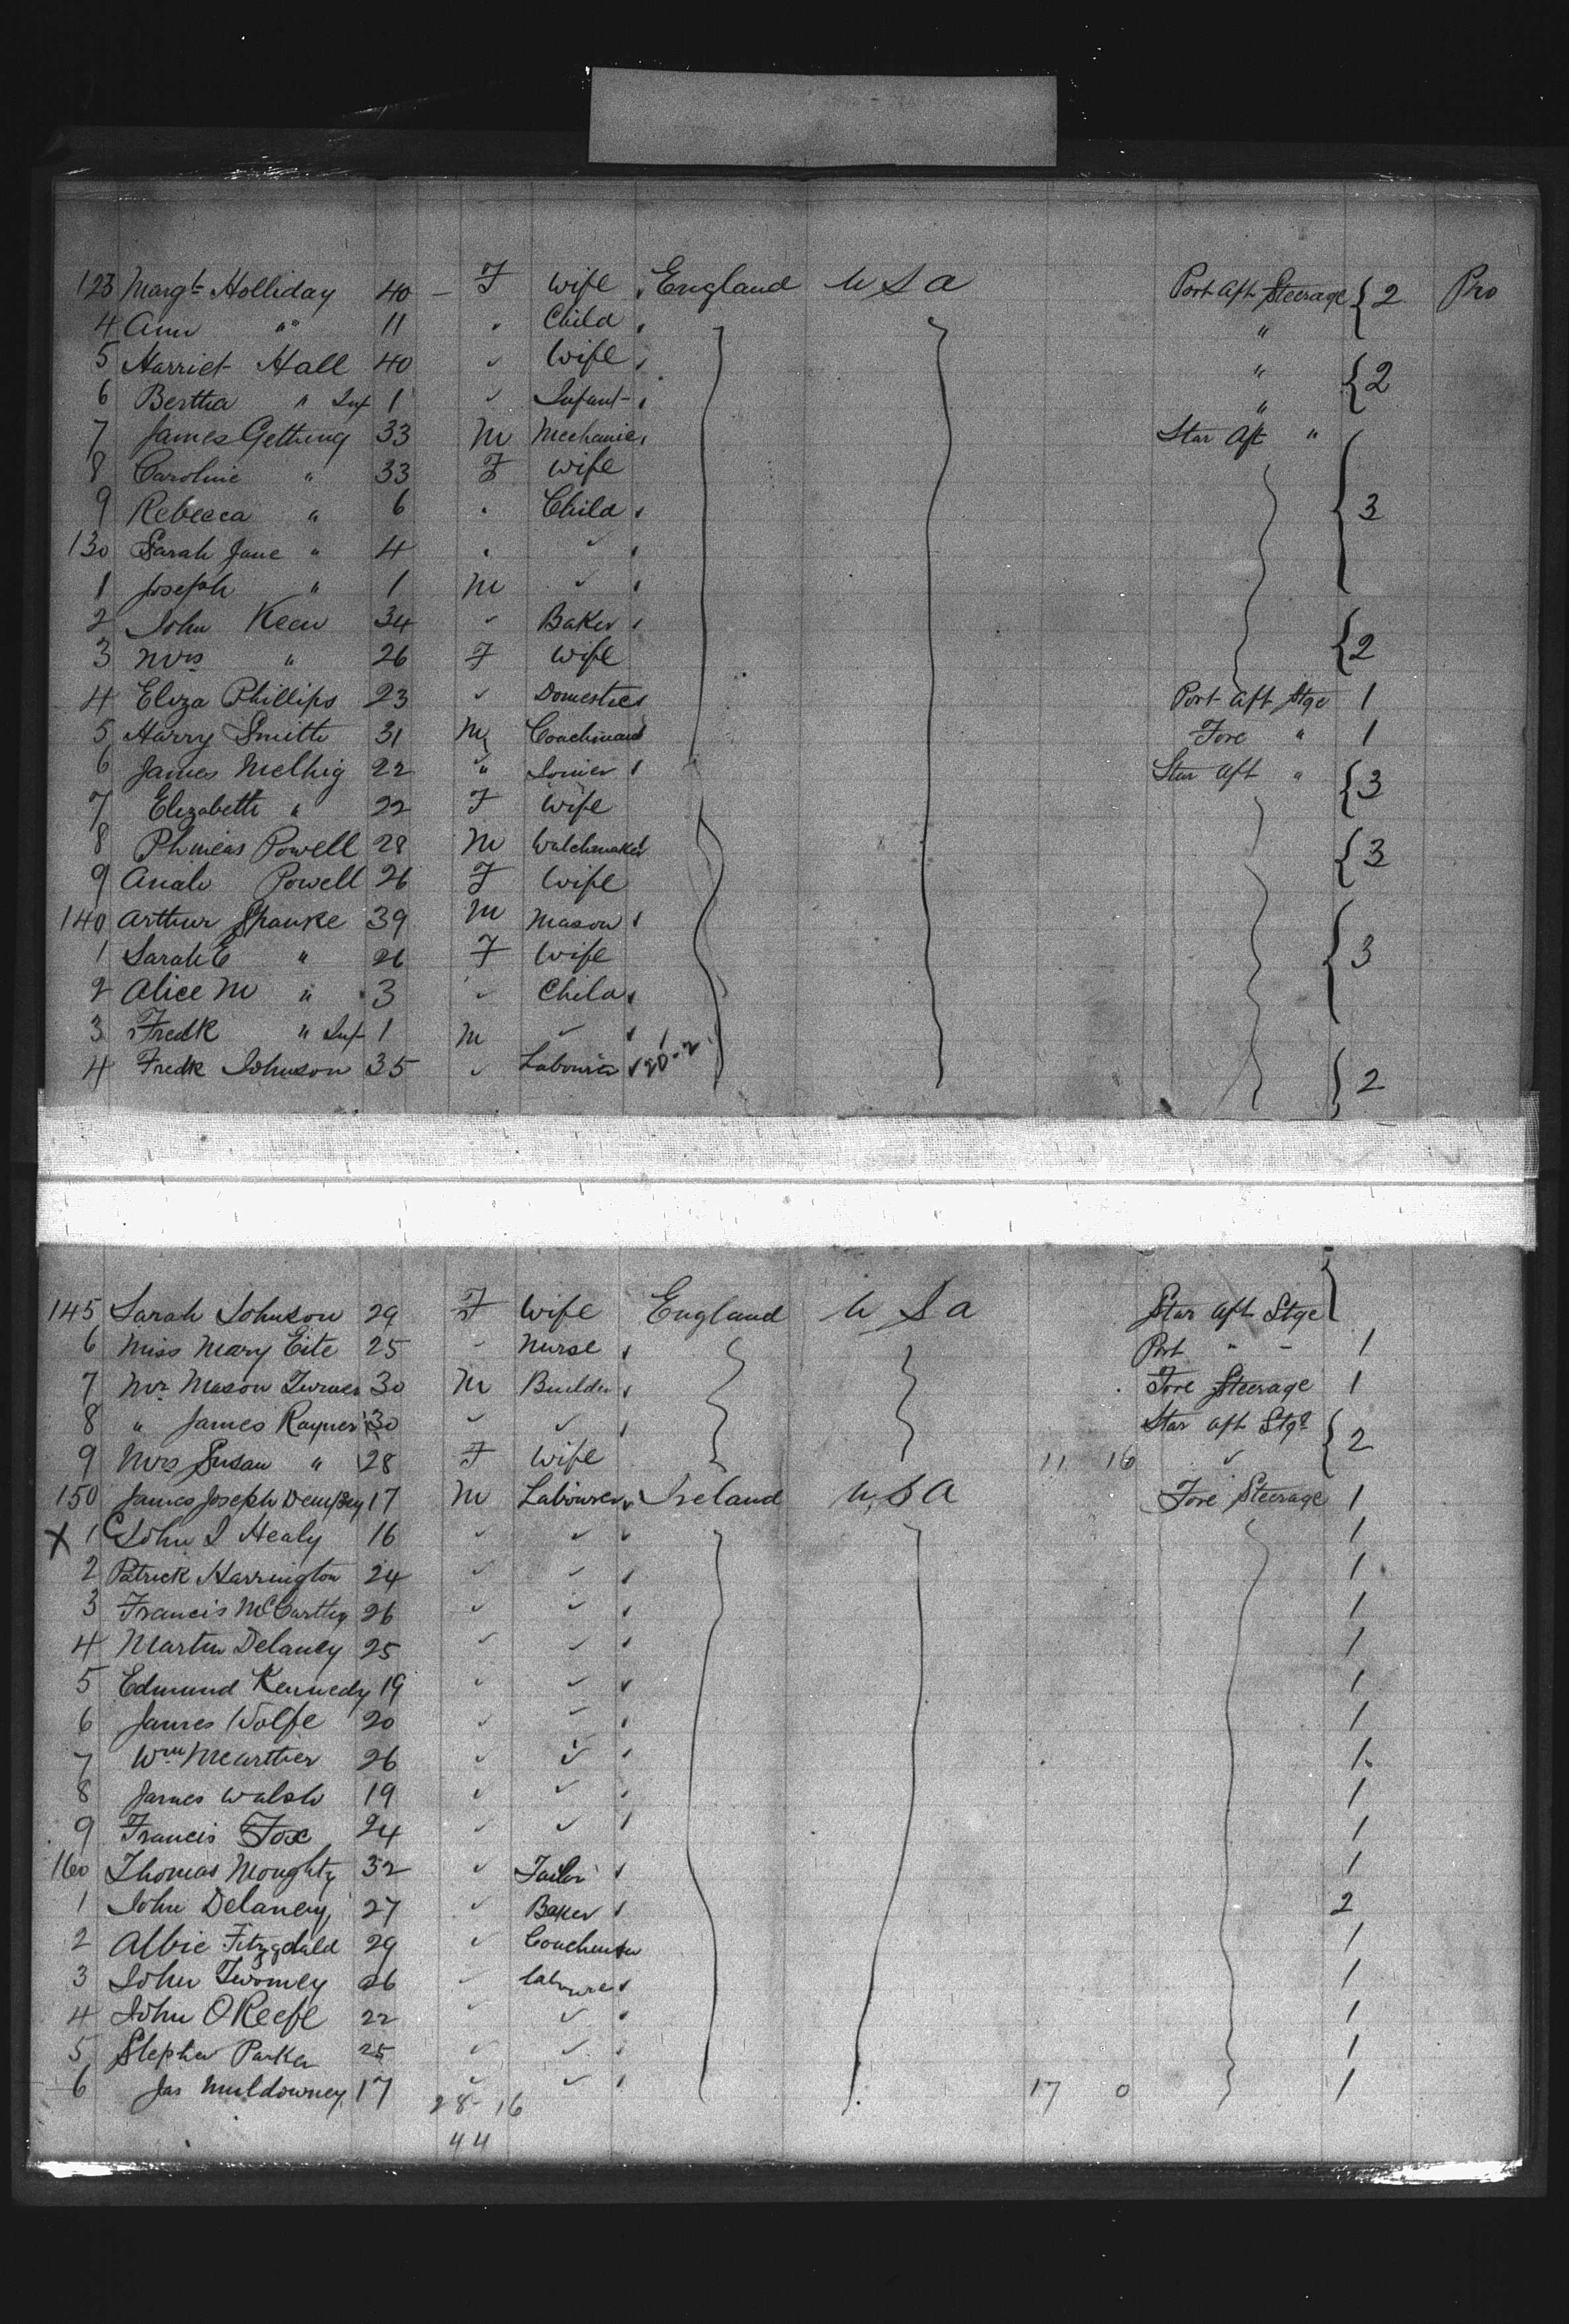 123 Margt Holliday 40 – F Wife England U S A Port Aft Steerage 2 Pro
4 Ann " 11 " Child "
5 Harriet Hall 40 " Wife " 2
6 Bertha " Inf 1 " Infant "
7 James Gething 33 M Mechanic Star Aft "
8 Caroline " 33 F Wife
9 Rebecca " 6 " Child 3
130 Sarah Jane " 4 " "
1 Joseph " 1 M "
2 John Keen 34 " Baker
3 Mrs " 26 F Wife 2
4 Eliza Phillips 23 " Domestic Port Aft Stge 1
5 Harry Smith 31 M Coachman Fore " 1
6 James Melhig 22 " Star Aft " 3
7 Elizabeth " 22 F Wife
8 Phineas Powell 28 M Watchmaker 3
9 Powell 26 F Wife
140 Arthur Spanke 39 M Mason
1 Sarah E " 26 F Wife 3
2 Alice M " 3 " Child
3 Fredk " Inf 1 M "
4 Fredk Johnson 35 " Labourer 20-2 2
145 Sarah Johnson 29 F Wife England U S A Star Aft Stge
6 Miss Mary Eite 25 " Nurse Port " " 1
7 Mr Mason Turner 30 M Builder Fore Steerage 1
8 " James Rayner 30 " " Star Aft Stge 2
9 Mrs Susan " 28 F Wife 11 16 "
150 James Joseph Dempsey 17 M Labourer Ireland U S A Fore Steerage 1
X 1 John J Healy 16 " " 1
2 Patrick Harrington 24 " " 1
3 Francis McCarthy 26 " " 1
4 Martin Delaney 25 " " 1
5 Edmund Kennedy 19 " " 1
6 James Wolfe 20 " " 1
7 Wm McArthier 26 " " 1
8 James Walsh 19 " " 1
9 Francis Fox 24 " " 1
160 Thomas Moughty 32 " Tailor 1
1 John Delaney 27 " Baker 2
2 Albie Fitzgdald 29 " Coachman 1
3 John Twomey 26 " Labourer 1
4 John O Keefe 22 " " 1
5 Stephen Parker 25 " " 1
6 Jas Muldowney 17 " " 17 0 1
28-16
44